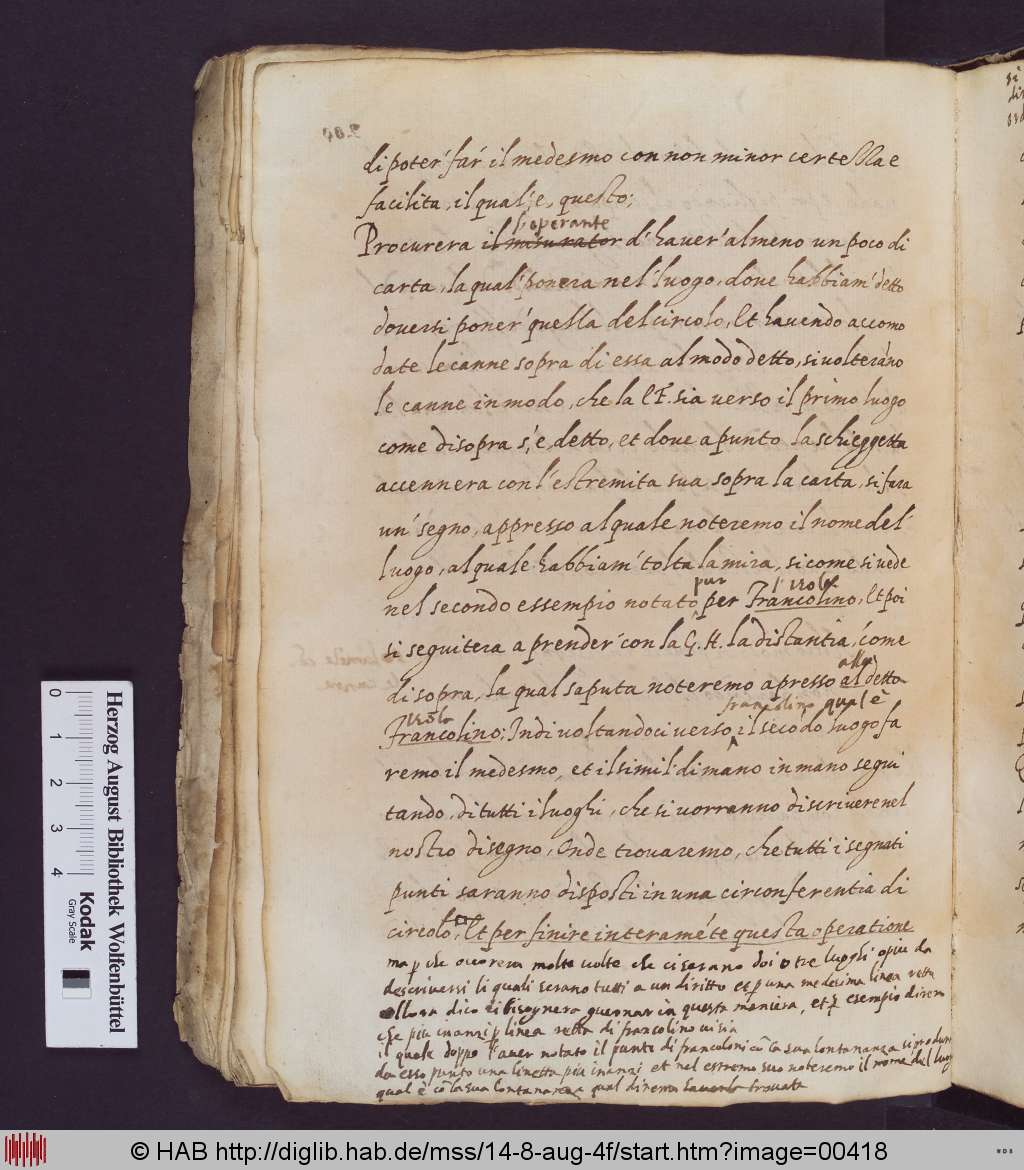 di poter' far' il medesmo con non minor certezza e
facilita, il qual', e, questo;
l'operante
Procurera il misurator d'haver' almeno un poco di
carta, la qual' ponera nel' luogo, dove habbiam' detto
doversi poner' quella del circolo, Et havendo accomo
date le canne sopra di essa al modo detto, si volterano
le canne in modo, che la E F. sia verso il primo luogo
come disopra s', e, detto, et dove apunto la schieggetta
accennera con l'estremita sua sopra la carta, si fara
un' segno, appresso al quale noteremo il nome del'
luogo, al quale habbiam' tolta la mira, si come si vede
pur l'isola
nel secondo essempio notato per Francolino, Et poi
si seguitera a prender' con la G. H. la distantia, come
alla
di sopra, la qual saputa noteremo apresso al detto
isola francolino qual è
Francolino; Indi voltandoci verso il secōdo luogo fa
remo il medesmo, et il simil' di mano in mano segui
tando, di tutti i luoghi, che si vorranno discrivere nel
nostro disegno, Onde trovaremo, che tutti i segnati
punti saranno disposti in una circonferentia di
circolo, Et per finire interamēte questa operatione
ma p che ocorera molte volte che ci serano doi o tre luoghi o piu da
descriversi li quali serano tutti a un diritto et p una medesima linea retta
allora dico ci bisognera guernar in questa maniera, et p esempio diremo
che piu inanzi p linea retta di francolino vi sia
il quale doppo l'aver notato il punto di francolini cō la sua lontananza si
da esso punto una linetta piu inanzi et nel estremo suo noteremo il nome del
qual è cō la sua lontananza qual diremo trovata
Herzog August Bibliothek Wolfenbüttel
Kodak
Gray Scale
0 1 2 3 4
© HAB http://diglib.hab.de/mss/14-8-aug-4f/start.htm?image=00418